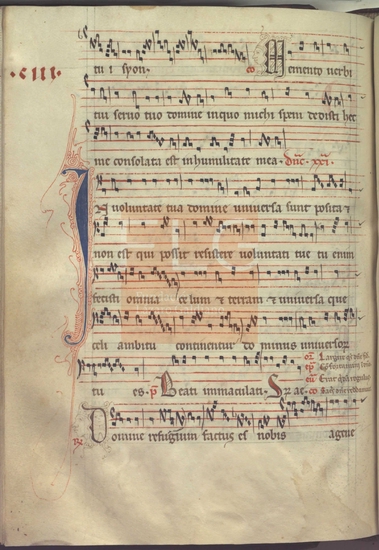 ·CIII·
tu i syon. co Memento verbi
tui servo tuo domine in quo michi spem dedisti hec
me consolata est in humilitate mea. Dnc. xxi.
In voluntate tua domine universa sunt posita et
non est qui possit resistere voluntati tue tu enim
fecisti omnia celum et terram et universa que
celi ambitu continentur dominus universorum
tu es. p Beati immaculati. 
Domine refugium factus es nobis agene